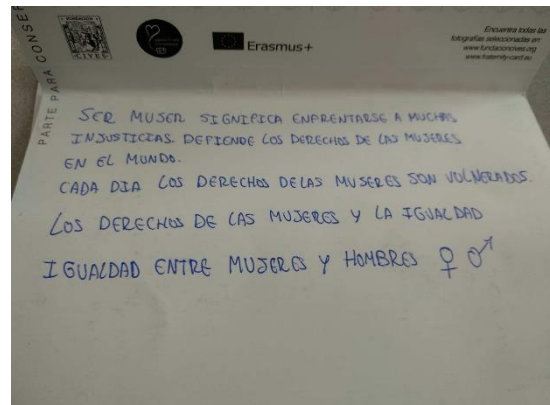 PARTE PARA CONSER
FUNDACIÓN
CIVES
Erasmus+
Encuentra todas las
fotografías seleccionadas en:
www.fundacioncives.org
www.fraternity-card.eu
SER MUJER SIGNIFICA ENFRENTARSE A MUCHAS
INJUSTICIAS. DEFIENDE LOS DERECHOS DE LAS MUJERES
EN EL MUNDO.
CADA DIA LOS DERECHOS DE LAS MUJERES SON VULNERADOS.
LOS DERECHOS DE LAS MUJERES Y LA IGUALDAD
IGUALDAD ENTRE MUJERES Y HOMBRES ♀ ♂